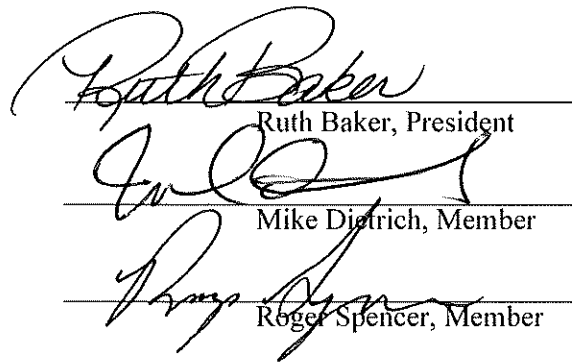 Ruth Baker
Ruth Baker, President
Mike Dietrich, Member
Roger Spencer, Member